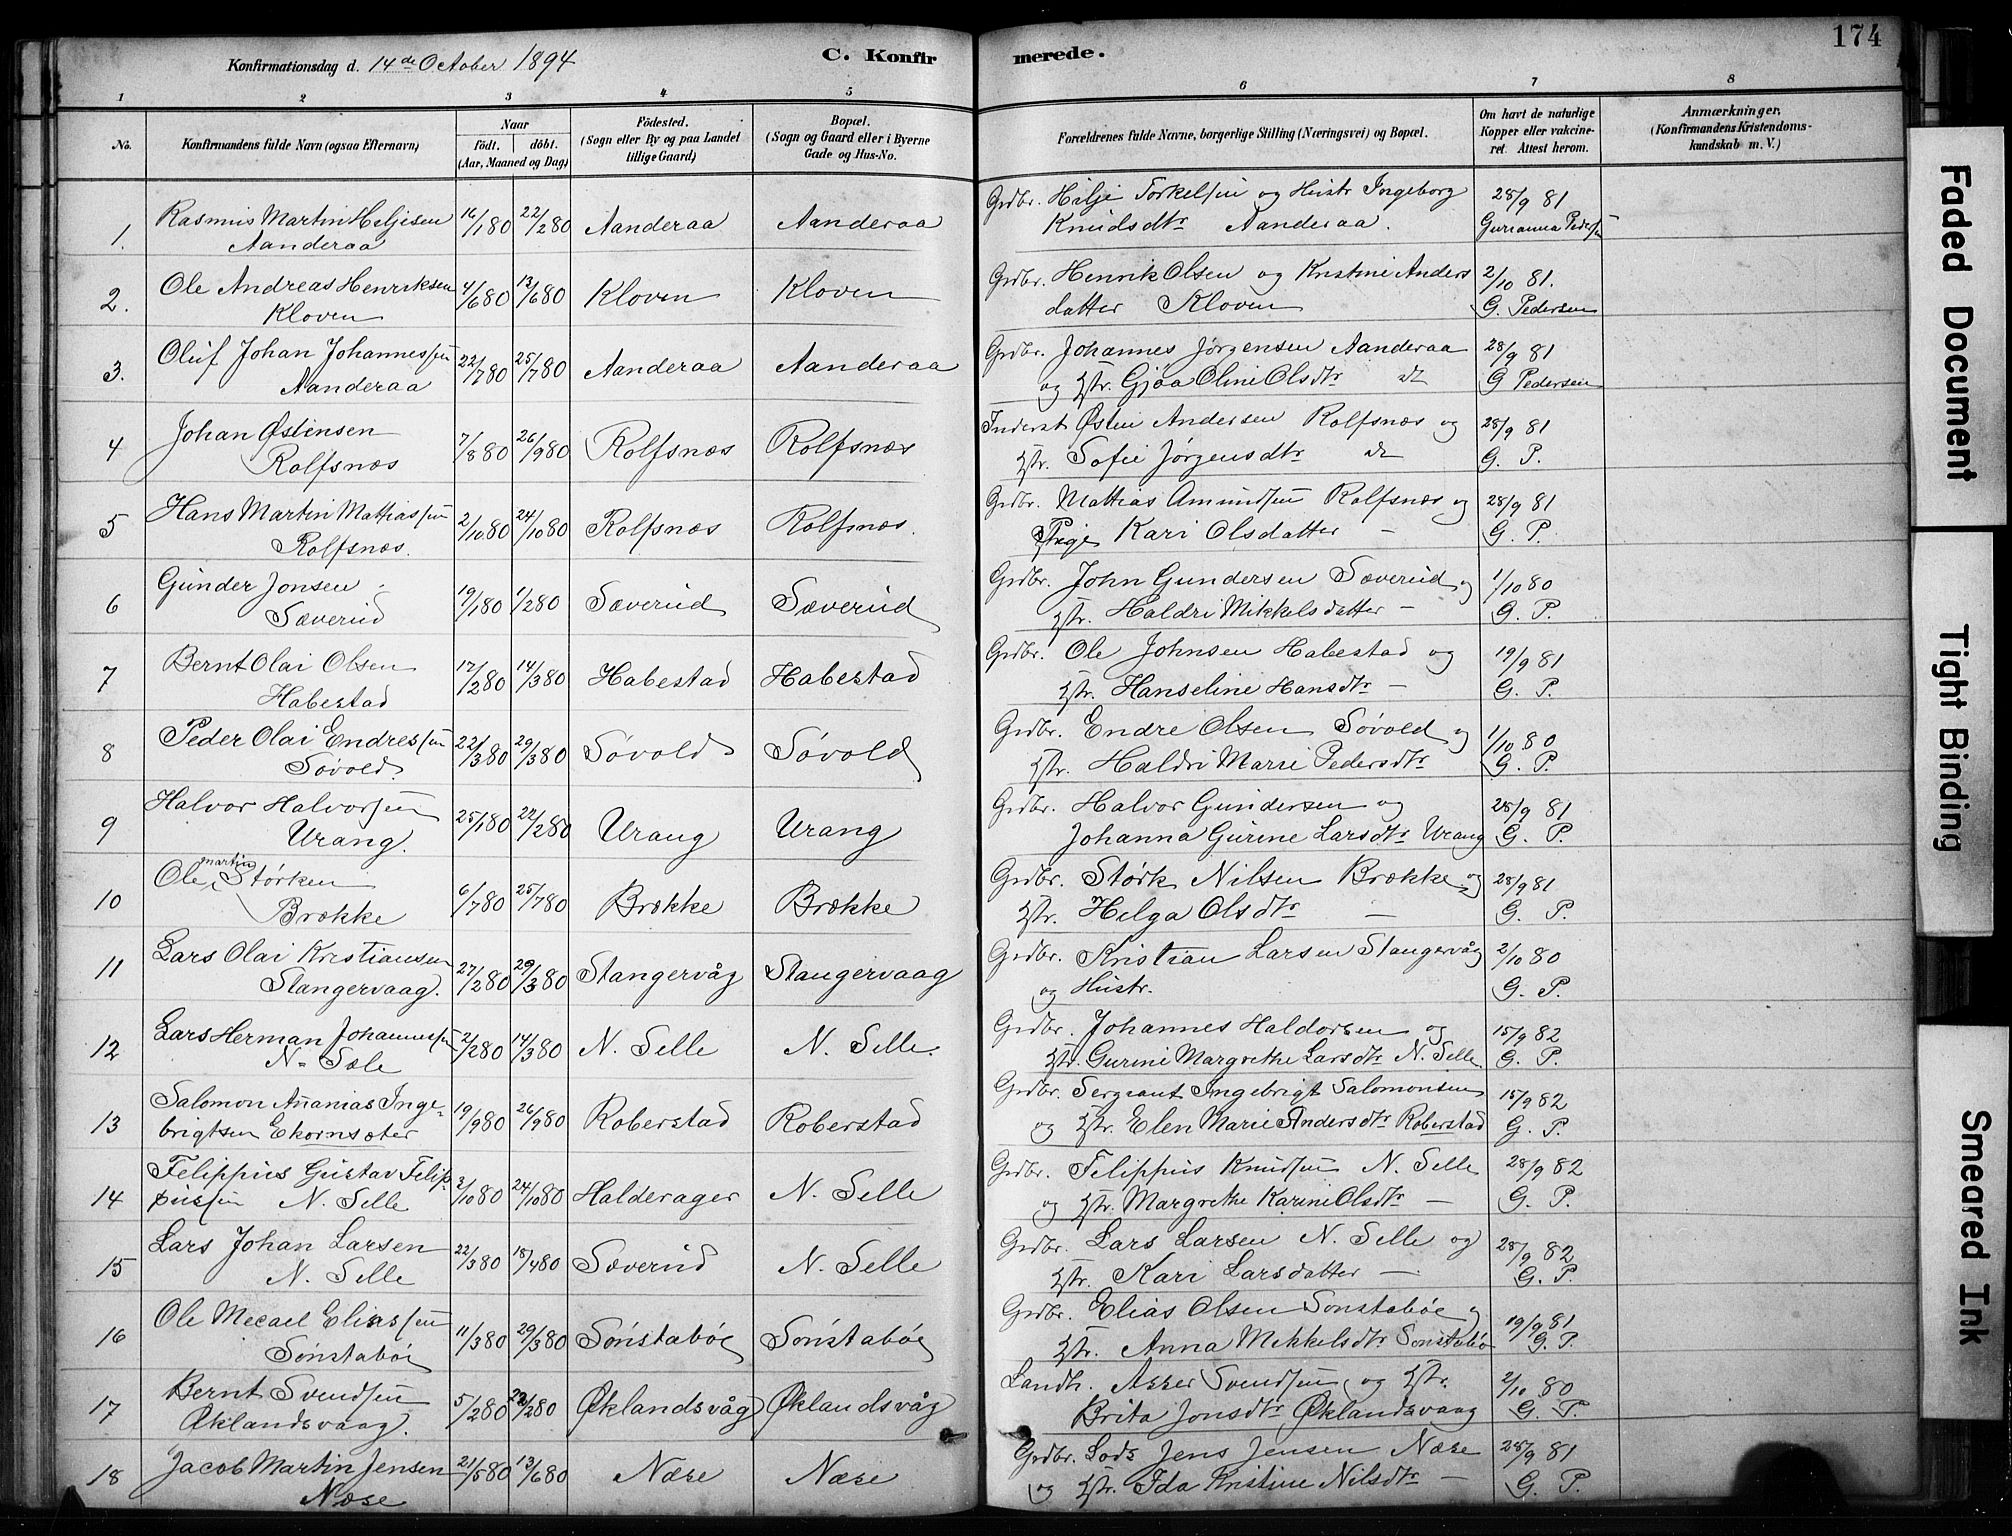 174
Konfirmationsdag d. 14de October 1894
C. Konfirmerede.
1 2 3 4 5 6 7 8
No.
Konfirmandens fulde Navn (ogsaa Efternavn)
Naar
født. døbt.
(Aar, Maaned og Dag)
Fødested.
(Sogn eller By og paa Landet
tillige Gaard)
Bopæl.
(Sogn og Gaard eller i Byerne
Gade og Hus-No.
Forældrenes fulde Navne, borgerlige Stilling (Næringsvei) og Bopæl.
Om havt de naturlige
Kopper eller vakcine-
ret. Attest herom.
Anmærkninger.
(Konfirmandens Kristendoms-
kundskab m. V.)
1. Rasmus Martin Heljesen 16/1 80 22/2 80 Aanderaa Aanderaa Grdbr. Hilje Torkelsen og Hustr Ingeborg 28/9 81
Aanderaa Knudsdtr Aanderaa. Gurianna Pedersen
2. Ole Andreas Henriksen 4/6 80 13/6 80 Kloven Kloven Grdbr. Henrik Olsen og Kristine Anders 2/10 81.
Kloven datter Kloven G. Pedersen
3. Oluf Johan Johannessen 22/7 80 25/7 80 Aanderaa Aanderaa Grdbr. Johannes Jørgensen Aanderaa 28/9 81
Aanderaa og Hstr. Gjøa Oline Olsdtr do G Pedersen
4 Johan Østensen 7/8 80 26/9 80 Rolfsnæs Rolfsnæs Inderst Østen Andersen Rolfsnæs og 28/9 81
Rolfsnæs Hstr. Sofie Jørgensdtr do G. P.
5 Hans Martin Mathiassen 2/10 80 24/10 80 Rolfsnæs Rolfsnæs. Grdbr. Mathias Amundsen Rolfsnæs og 28/9 81
Rolfsnæs. Pige Kari Olsdatter - G. P.
6 Gunder Jonsen 19/1 80 1/2 80 Sæverud Sæverud Grdbr. John Gundersen Sæverud og 1/10 80
Sæverud Hstr. Haldri Mikkelsdatter - G. P.
7 Bernt Olai Olsen 17/2 80 14/3 80 Habestad Habestad Grdbr. Ole Johnsen Habestad og 19/9 81
Habestad Hstr. Hanseline Hansdtr - G. P.
8 Peder Olai Endressen 22/3 80 29/3 80 Søvold Søvold Grdbr. Endre Olsen Søvold og 1/10 80
Søvold. Hstr. Haldri Marie Pedersdtr G. P.
9 Halvor Halvorsen 25/1 80 22/2 80 Urang Urang Grdbr. Halvor Gundersen og 28/9 81
Urang. Johanna Gurine Larsdtr Urang G. P.
10 Ole martin Størksen 6/7 80 25/7 80 Brække Brække Grdbr. Størk Nilsen Brække og 28/9 81
Brække Hstr. Helga Olsdtr - G. P.
11 Lars Olai Kristiansen 27/2 80 29/3 80 Stangervåg Stangervaag Grdbr. Kristian Larsen Stangervåg 2/10 80
Stangervaag. og Hustr. G. P.
12 Lars Herman Johannessen 2/2 80 14/3 80 N. Selle N. Selle. Grdbr. Johannes Haldorsen og 15/9 82
N. Sæle Hstr. Gurine Margrethe Larsdtr N. Selle. G. P.
13 Salomon Ananias Inge- 19/9 80 26/9 80 Roberstad Roberstad Grdbr. Sergeant Ingebrigt Salomonsen 15/9 82
brigtsen Ekornsæter og Hstr. Elen Marie Andersdtr Roberstad G. P.
14 Filippus Gustav Filip- 3/10 80 24/10 80 Halderager N. Selle Grdbr. Filippus Knudsen N. Selle 28/9 82
pussen N. Selle og Hstr. Margrethe Karine Olsdtr - G. P.
15 Lars Johan Larsen 22/3 80 18/4 80 Sæverud N. Selle Grdbr. Lars Larsen N. Selle og 28/9 82
N. Selle Hstr. Kari Larsdatter - G. P.
16 Ole Mecael Eliassen 11/3 80 29/3 80 Sønstabøe Sønstabøe Grdbr. Elias Olsen Sønstabøe og 19/9 81
Sønstabøe Hstr. Anna Mekkelsdtr Sønstabø G. P.
17 Bernt Svendsen 5/2 80 22/2 80 Øklandsvåg Øklandsvåg Landh. Asser Svendsen og Hstr. 2/10 80
Øklandsvaag. Brita Jonsdtr Øklandsvaag G. P.
18 Jacob Martin Jensen 21/5 80 13/6 80 Næse Næse Grdbr. Lods Jens Jensen Næse 28/9 81
Næse og Hstr. Ida Kristine Nilsdtr - G. P.
Faded Document
Tight Binding
Smeared Ink